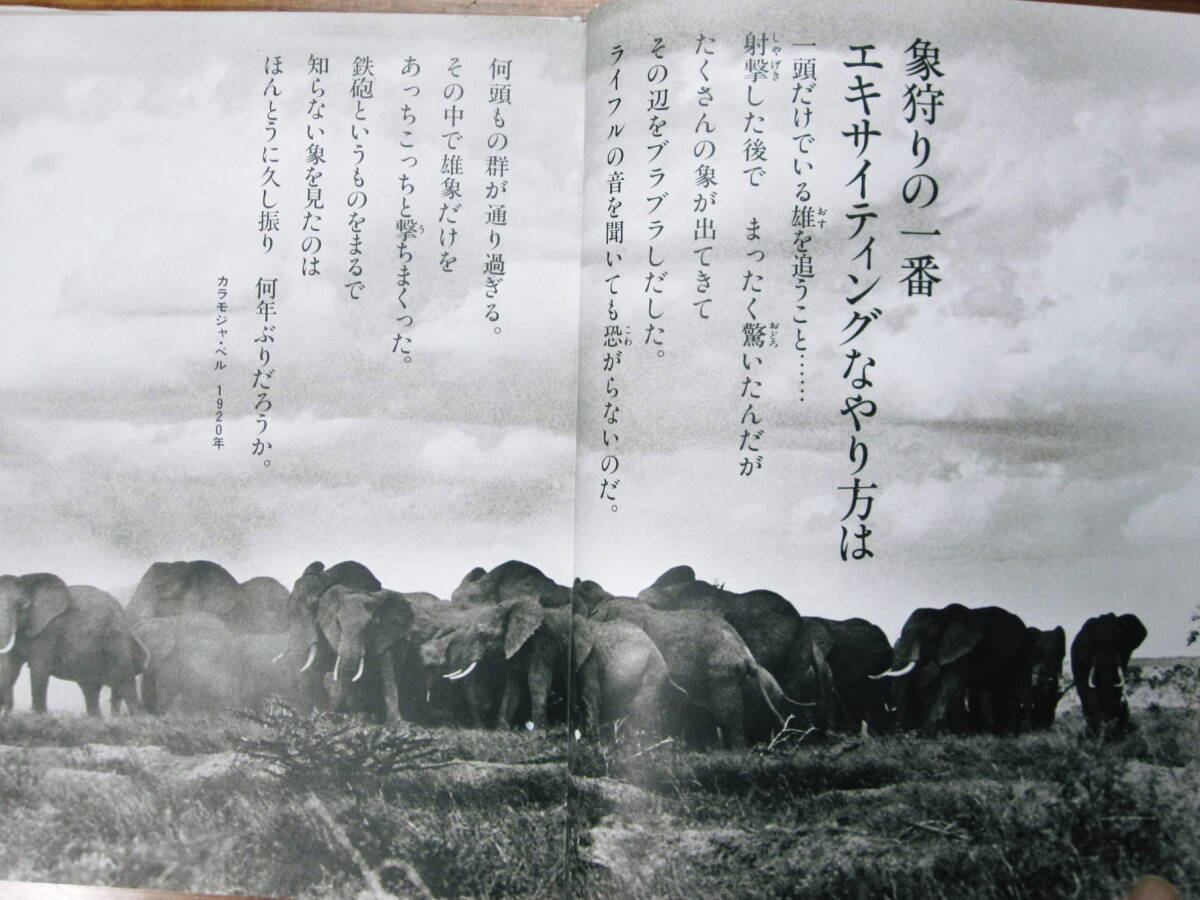 象狩りの一番
エキサイティングなやり方は
一頭だけでいる雄を追うこと……
射撃した後で　まったく驚いたんだが
たくさんの象が出てきて
その辺をブラブラしだした。
ライフルの音を聞いても恐がらないのだ。
何頭もの群が通り過ぎる。
その中で雄象だけを
あっちこっちと撃ちまくった。
鉄砲というものをまるで
知らない象を見たのは
ほんとうに久し振り　何年ぶりだろうか。
カラモジャ・ベル　1920年